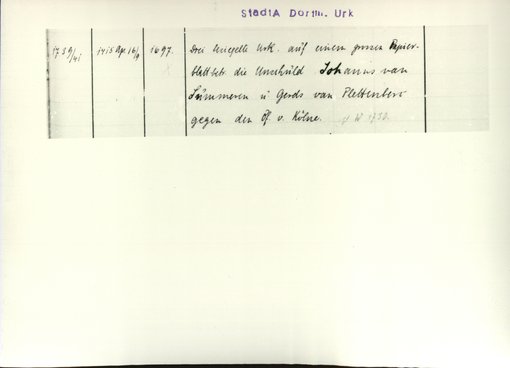 StadtA Dortm. Urk
1739/41 1415 Apr. 16/9 1697. Drei besiegelte Urk. auf einem grossen Papier-
blatt betr. die Unschuld Johanns van
Summeren u Gerds van Plettenberg
gegen den Ef. v. Kölne.